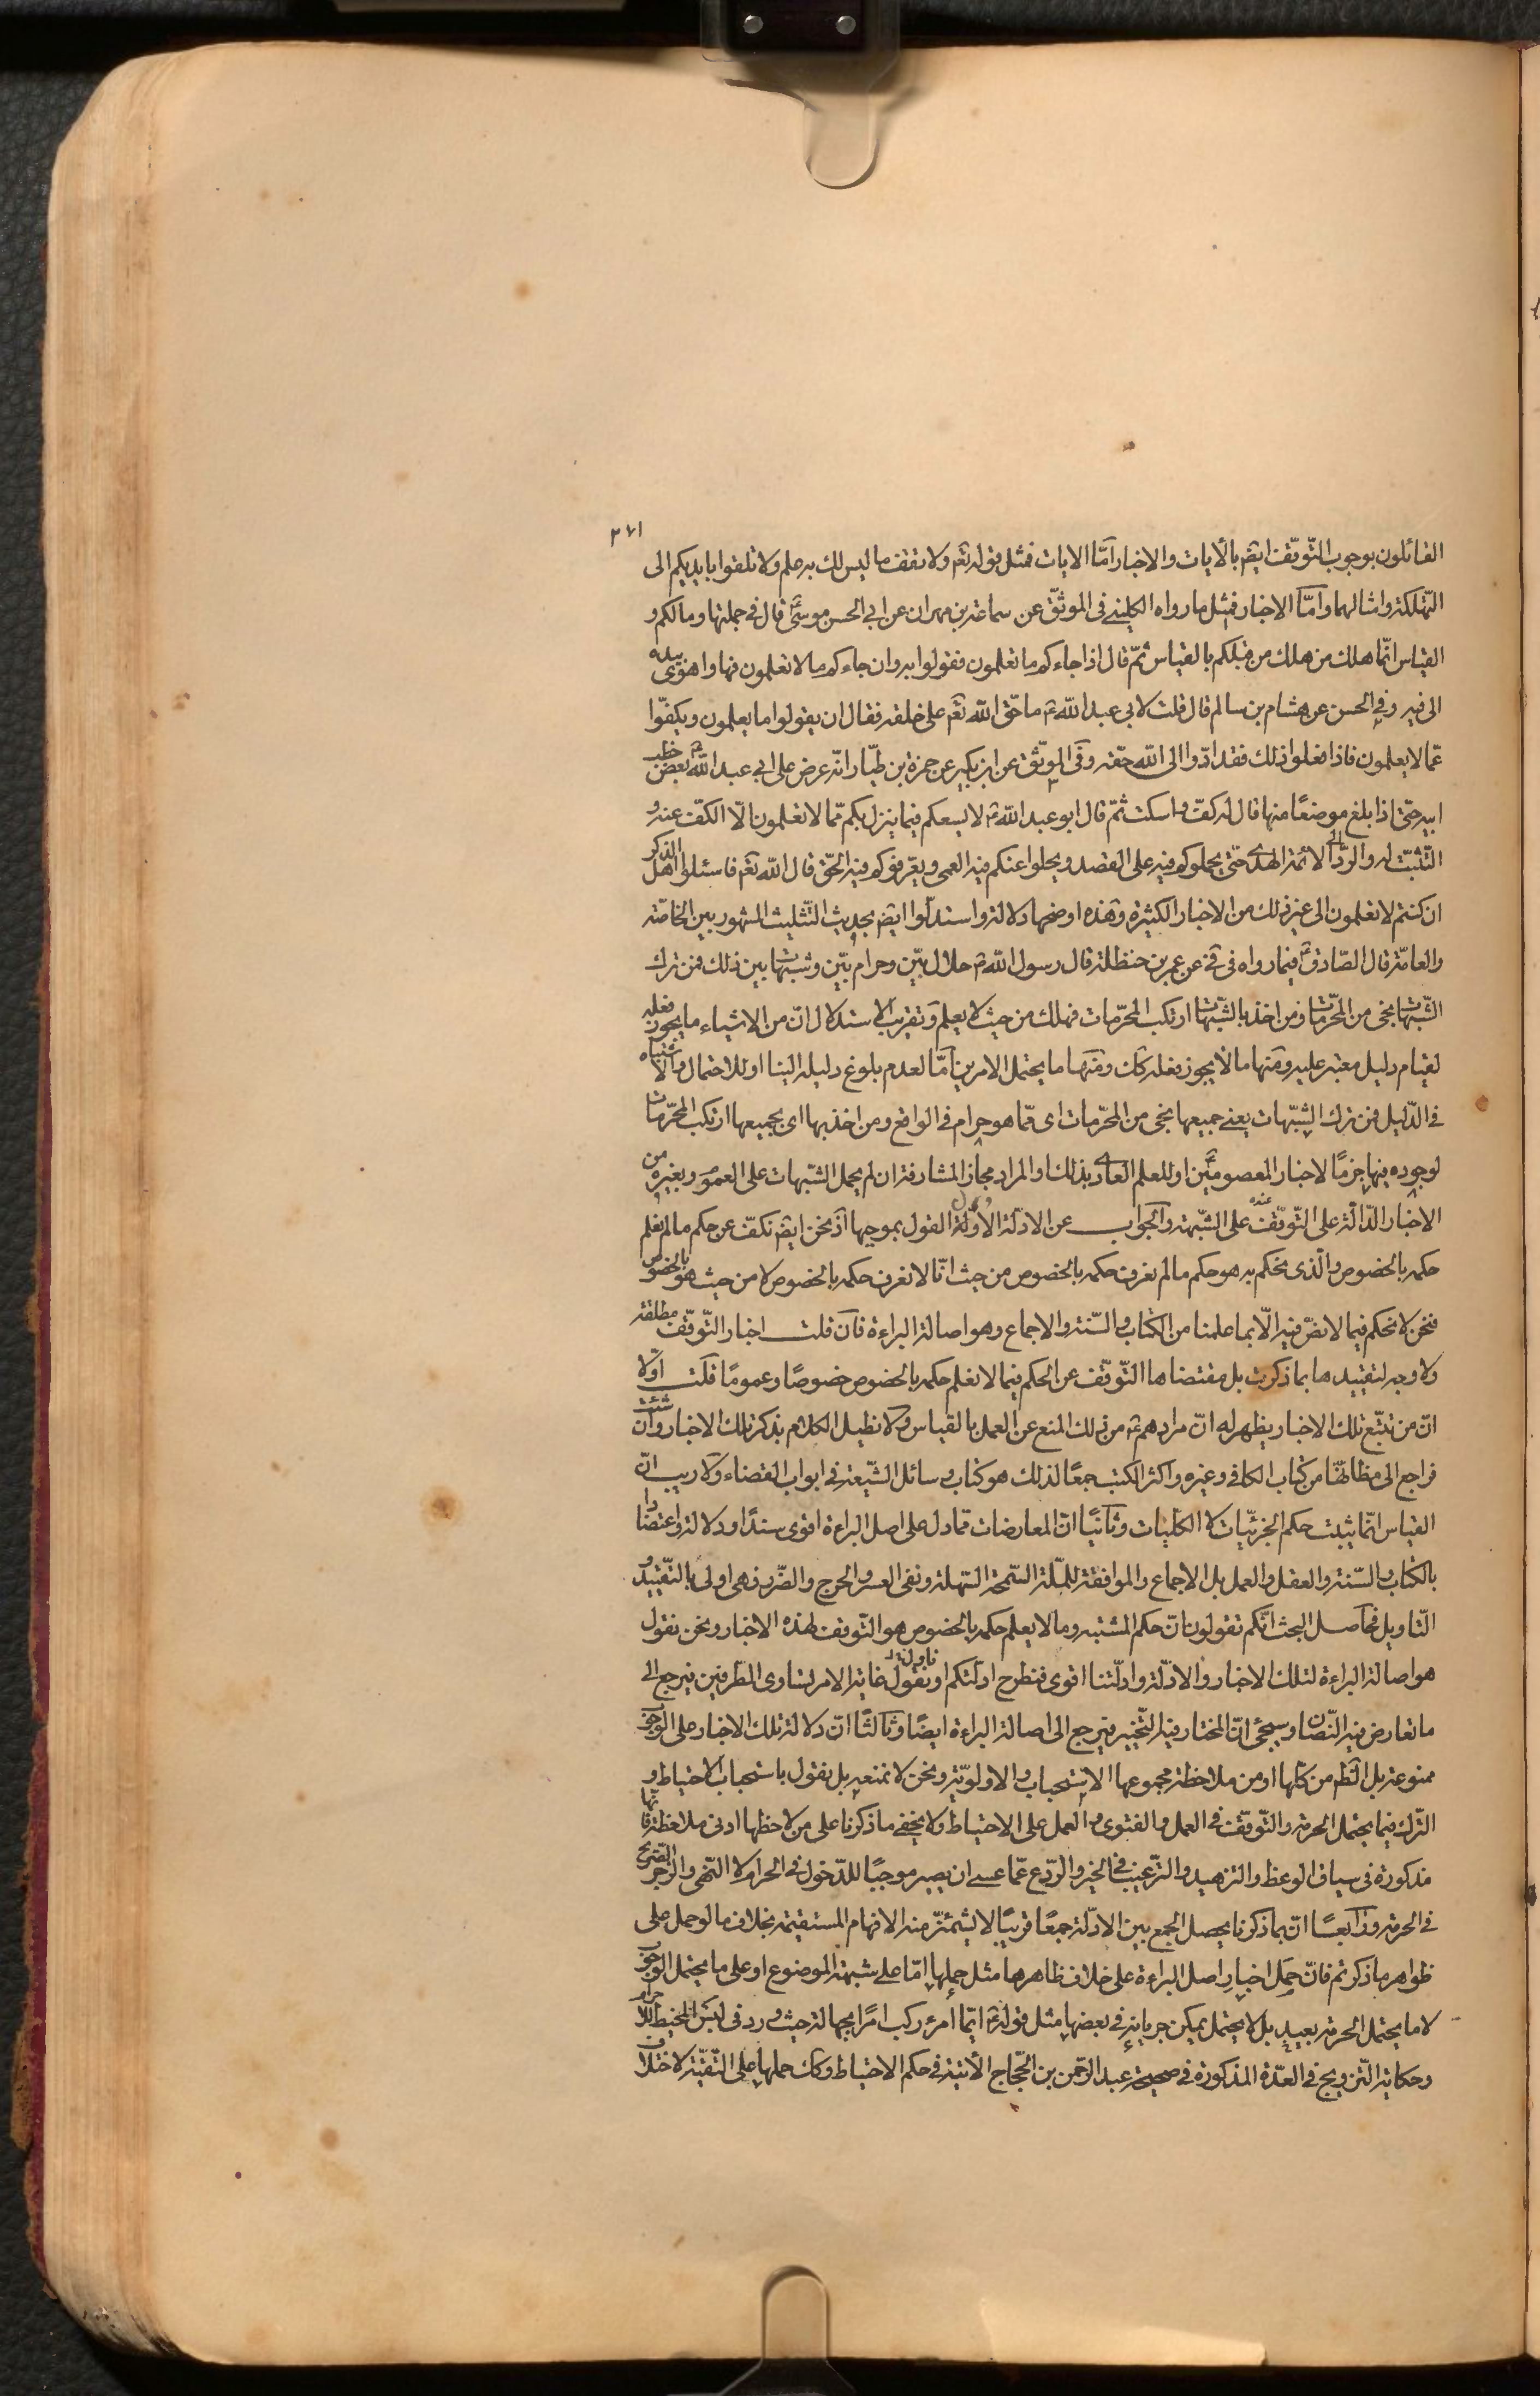 ٢٧١
القائلون بوجوب التّوقّف ايضً بالآيات والاخبار امّا الآيات فمثل قوله تعَم ولا تقف ما ليس لك به علم ولا تلقوا بايديكم الى
التّهلكة وامثالهما وامّا الاخبار فمثل ما رواه الكلينے فى الموثّق عن سماعة بن مهران عن ابى الحسن موسىٰ ع قال فى جملتها وما لكم و
القياس انّما هلك من هلك من قبلكم بالقياس ثمّ قال اذا جاءكم ما تعلمون فقولوا به وان جاءكم ما لا تعلمون فها واهوى بيده
الى فيه وفى الحسن عن هشام بن سالم قال قلت لابى عبد الله ع ما حقّ الله تعَم على خلقه فقال ان يقولوا ما يعلمون ويكفّوا
عمّا لا يعلمون فاذا فعلوا ذلك فقد ادّوا الى الله حقّه وفى الموثّق عن ابن بكير عن حمزة بن طيّار انّه عرض على ابى عبد الله ع بعض خطب
ابيه حتّى اذا بلغ موضعًا منها قال له كفّ واسكت ثمّ قال ابو عبد الله ع لا يسعكم فيما ينزل بكم ممّا لا تعلمون الّا الكفّ عنه و
التّثبّت له والردّ الى الائمة الهدى حتّى يحملوكم فيه على القصد ويجلوا عنكم فيه العمى ويعرّفوكم فيه الحقّ قال الله تعَم فاسئلوا اهل الذكر
ان كنتم لا تعلمون الى غير ذلك من الاخبار الكثيرة وهذه اوضحها دلالة واستدلّوا ايضً بحديث التّثليث المشهور بين الخاصّة
والعامّة قال الصّادق ع فيما رواه فى فى عن عمر بن حنظلة قال رسول الله ص حلال بيّن وحرام بيّن وشبهات بين ذلك فمن ترك
الشّبهات نجى من المحرّمات ومن اخذ بالشّبهات ارتكب المحرّمات فهلك من حيث لا يعلم وتقريب الاستدلال انّ من الاشياء ما يجوز فعله
لقيام دليل معتبر عليه ومنها ما لا يجوز فعله كك ومنها ما يحتمل الامرين امّا لعدم بلوغ دليله الينا او للاحتمال والاشتباه
فى الدّليل فمن ترك الشبّهات يعنے جميعها نجى من المحرّمات اى ممّا هو حرام فى الواقع ومن اخذ بها اى بجميعها ارتكب المحرّمات
لوجوده فيها جزمًا لاخبار المعصومين ع او للعلم العادى بذلك والمراد مجاز المشارفة ان لم يحمل الشبّهات على العموم وبغيره من
الاخبار الدّالّة على التّوقّف عنده على الشّبهة والجواب عن الادلّة الاوّلة القول بموجبها اذ نحن ايضً نكفّ عن حكم ما لم نعلم
حكمه بالخصوص والّذى نحكم به هو حكم ما لم نعرف حكمه بالخصوص من حيث انّا لا نعرف حكمه بالخصوص لا من حيث هو بالخصوص
فنحن لا نحكم فيما لا نصّ فيه الّا بما علمنا من الكتاب والسّنة والاجماع وهو اصالة البراءة فان قلت اخبار التّوقّف مطلقة
ولا وجه لتقييدها بما ذكرت بل مقتضاها التّوقّف عن الحكم فيما لا نعلم حكمه بالخصوص خصوصًا وعمومًا قلت اوّلا
انّ من تتبّع تلك الاخبار يظهر له انّ مرادهم ع من ذلك المنع عن العمل بالقياس ولا نطيل الكلام بذكر تلك الاخبار وان شئت
فراجع الى مظانّها من كتاب الكافى وغيره واكثر الكتب جمعًا لذلك هو كتاب وسائل الشّيعة فى ابواب القضاء ولا ريب انّ
القياس انّما يثبت حكم الجزئيّات لا الكلّيات وثانيًا انّ المعارضات ممّا دل على اصل البراءة اقوى سندًا ودلالة واعتضادا
بالكتاب والسّنة والعقل والعمل بل الاجماع والموافقة للملّة السّمحة السّهلة ونفى العسر والحرج والضّرر فهى اولى بالتّقييد و
التّاويل فحاصل البحث انّكم تقولون انّ حكم المشتبه وما لا يعلم حكمه بالخصوص هو التّوقف لهذه الاخبار ونحن نقول
هو اصالة البراءة لتلك الاخبار والادلّة وادلّتنا اقوى فنطرح ادلّتكم او نقول غاية الامر تساوى الطّرفين فيرجع الى
ما تعارض فيه النّصّان وسيجئ انّ المختار فيه التّخيير فيرجع الى اصالة البراءة ايضًا وثالثًا انّ دلالة تلك الاخبار على الوجوب
ممنوعة بل الظّم من كلّها او من ملاحظة مجموعها الاستحباب والاولويّة ونحن لا نمنعه بل نقول باستحباب الاحتياط و
الترك فيما يحتمل الحرمة والتّوقّف فى العمل والفتوى والعمل على الاحتياط ولا يخفى ما ذكرنا على من لاحظها ادنى ملاحظة فانّها
مذكورة فى سياق الوعظ والتزهيد والتّرغيب فى الخير والرّدع عمّا عسى ان يصير موجبًا للدّخول فى الحرام لا النّهى والزجر الصّريح
فى الحرمة ورابعًا انّ بما ذكرنا يحصل الجمع بين الادلّة جمعًا قريبًا لا يشمئزّ منه الافهام المستقيمة بخلاف ما لو حمل على
ظواهر ما ذكرتم فانّ حمل اخبار اصل البراءة على خلاف ظاهرها مثل حملها امّا على شبهة الموضوع او على ما يحتمل الوجوب
لا ما يحتمل الحرمة بعيد بل لا يحتمل يمكن جريانه فى بعضها مثل قوله ع ايّما امرئ ركب امرًا بجهالة حيث ورد فى لبس المخيط للاحرام
وحكاية التّزويج فى العدّة المذكورة فى صحيحة عبد الرّحمن بن الحجّاج الآتية فى حكم الاحتياط وكك حملها على التّقيّة لاختلاف